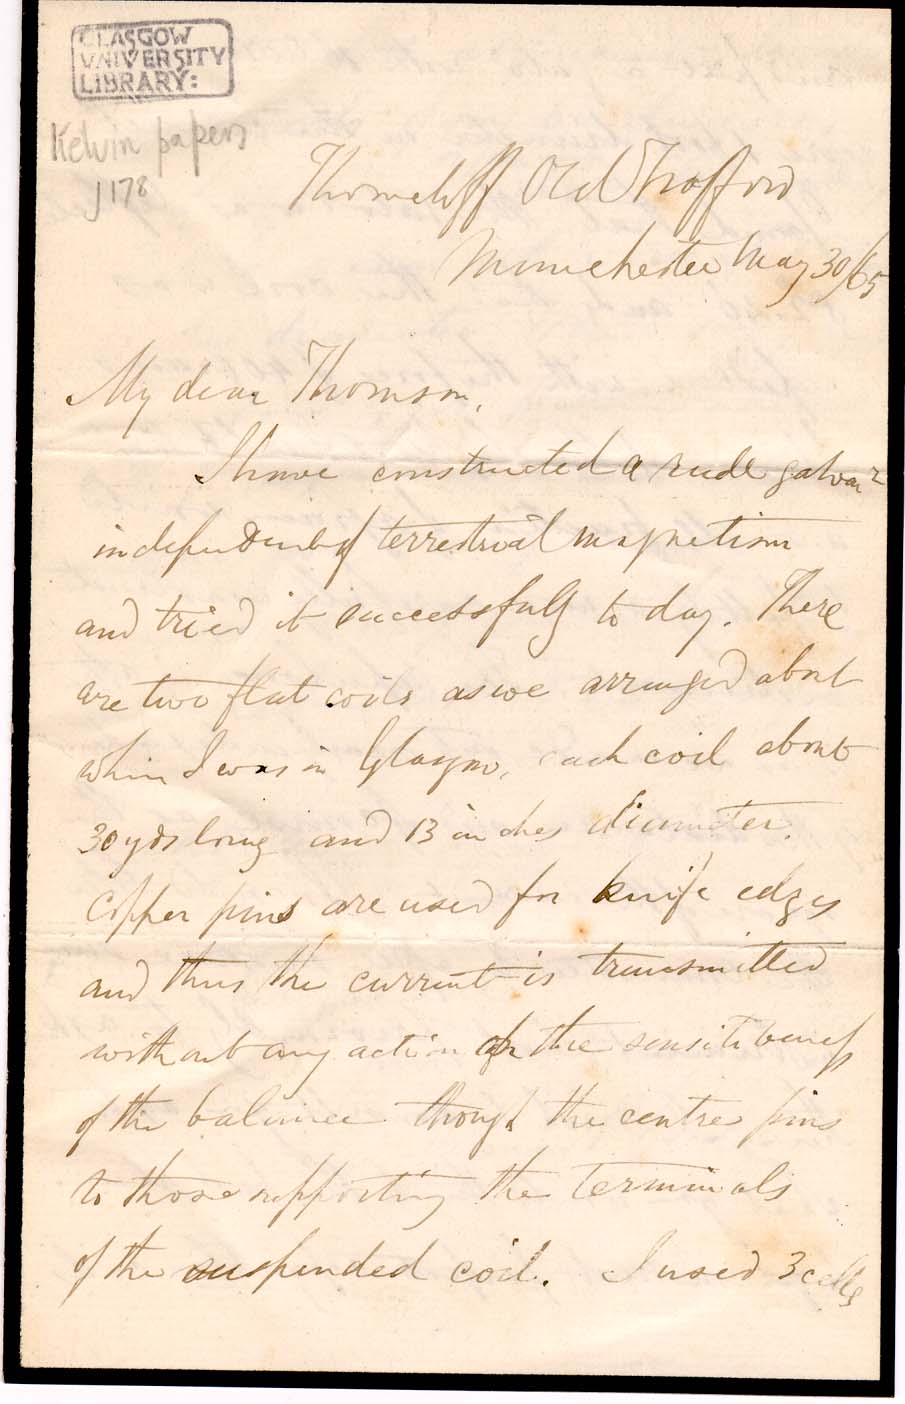 GLASGOW
UNIVERSITY
LIBRARY:
Kelvin papers
J178
Thorncliff Old Trafford
Manchester May 30/65
My dear Thomson,
I have constructed a rude galvanr
independent of terrestrial magnetism
and tried it successfully to day. There
are two flat coils as we arranged about
when I was in Glasgow, each coil about
30 yds long and 13 inches diameter.
Copper pins are used for knife edges
and thus the current is transmitted
without any action on the sensitiveness
of the balance though the centre pins
to those supporting the terminals
of the suspended coil. I used 3 cells